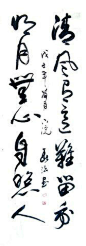 清風有意難留我
明月無心自照人
戊子年